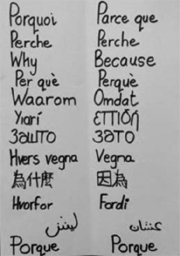 Porquoi Parce que
Perche Perche
Why Because
Per què Perquè
Waarom Omdat
Γιατί επιδή
Зашто Зато
Hvers vegna Vegna
為什麼 因為
Hvorfor Fordi
ليش عشان
Porque Porque